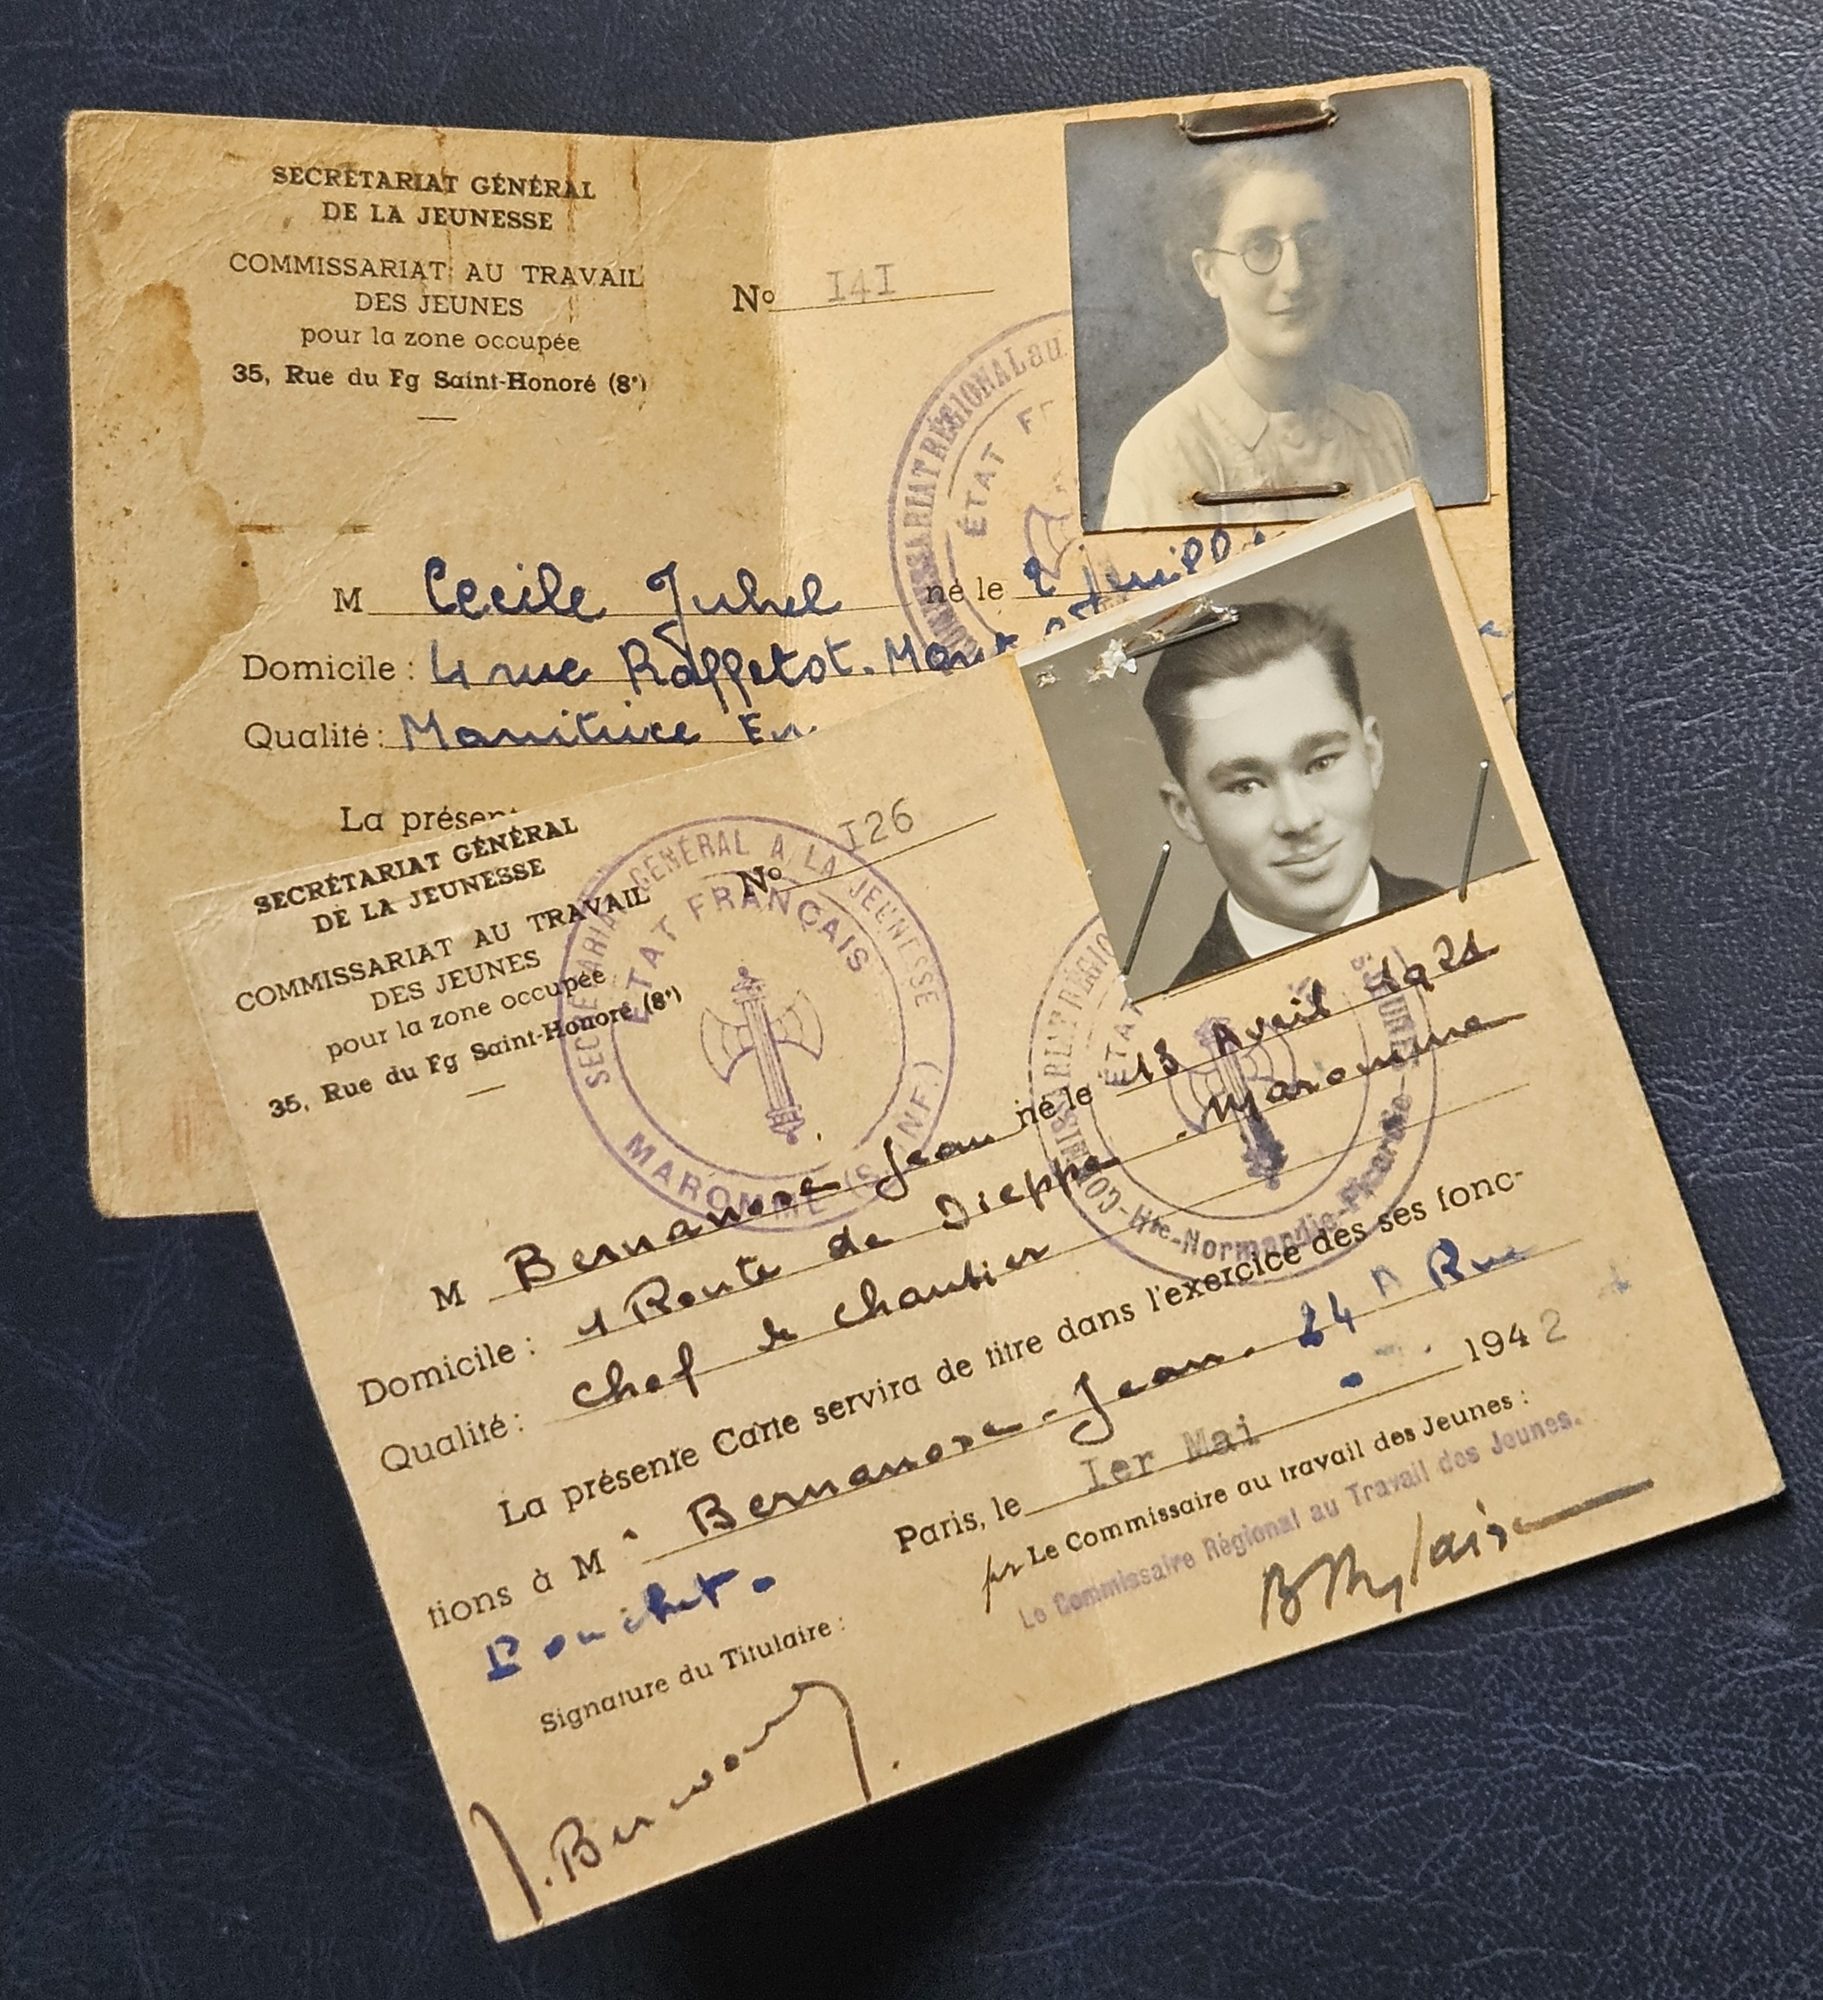 SECRÉTARIAT GÉNÉRAL
DE LA JEUNESSE
COMMISSARIAT AU TRAVAIL
DES JEUNES
pour la zone occupée
35, Rue du Fg Saint-Honoré (8e)
No I4I
COMMISSARIAT RÉGIONAL au
ÉTAT FR
M Cecile Juhel né le 2 Juill
Domicile : 4 rue Rappetot. Mont
Qualité : Monitrice En
La présen
SECRÉTARIAT GÉNÉRAL
DE LA JEUNESSE
COMMISSARIAT AU TRAVAIL
DES JEUNES
pour la zone occupée
35, Rue du Fg Saint-Honoré (8e)
No I26
SECRÉTARIAT GÉNÉRAL A LA JEUNESSE
ÉTAT FRANÇAIS
MAROMME (S. INF.)
COMMISSARIAT RÉGIO
ÉTAT
Hte-Normandie-Picardie
M Bernanose Jean né le 13 Avril 1921
Domicile : 1 Route de Dieppe . Maromme
Qualité : Chef de Chantier
La présente Carte servira de titre dans l'exercice des ses fonc-
tions à M Bernanose - Jean. 24 A Rue
Pouchet.
Paris, le Ier Mai 1942
pr Le Commissaire au travail des Jeunes :
Le Commissaire Régional au Travail des Jeunes.
Signature du Titulaire :
J. Bernanos